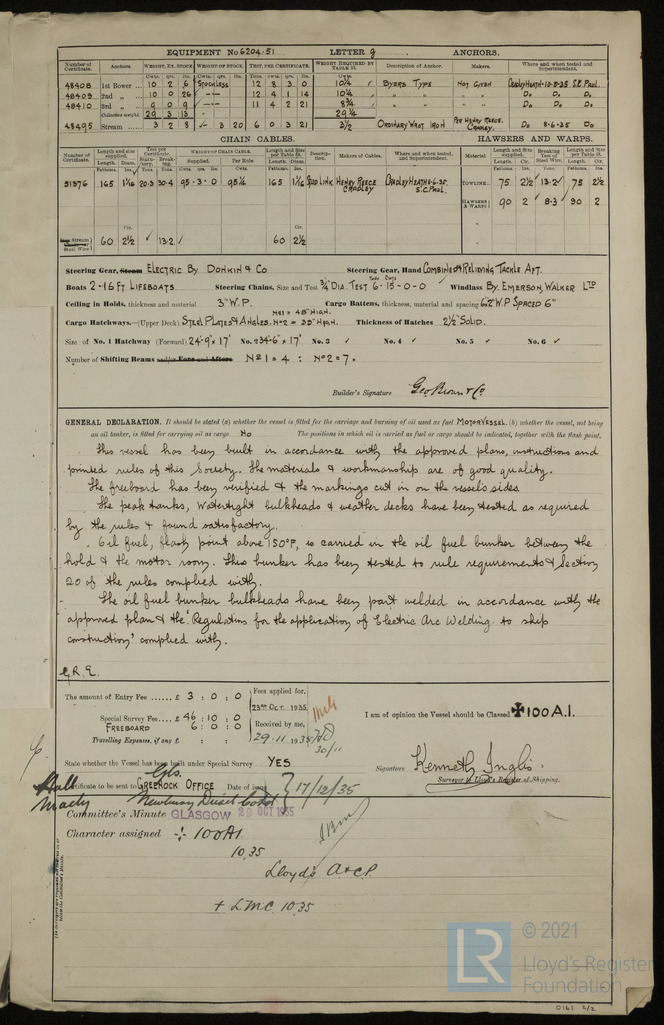 EQUIPMENT No 6204.51 LETTER g ANCHORS.
Number of Certificate. Anchors. WEIGHT, EX. STOCK WEIGHT OF STOCK TEST, PER CERTIFICATE. WEIGHT REQUIRED BY TABLE 31. Description of Anchor. Makers. Where and when tested and Superintendent.
Cwts. qrs. lbs. Cwts. qrs. lbs. Tons. Cwts. qrs. lbs. Cwts.
48408 1st Bower 10 2 6 STOCKLESS 12 8 3 0 10¼ BYERS TYPE NOT GIVEN CRADLEY HEATH-10-5-35 S.C. PAUL.
48409 2nd „ 10 0 26 12 4 1 14 10¼ „ „ „ „ Do Do
48410 3rd „ 9 0 9 11 4 2 21 8¾ „ „ „ „ Do Do
Collective weight 29 3 13 29¼
48495 Stream 3 2 8 3 20 6 0 3 21 3½ ORDINARY WROT IRON PER HENRY REECE. CRADLEY. Do 8-6-35 Do
CHAIN CABLES. HAWSERS AND WARPS.
Number of Certificate. Length and size supplied. Test per Certificate. WEIGHT OF CHAIN CABLE. Length and Size per Table 31. Description. Makers of Cables. Where and when tested, and Superintendent. Material Length and Size supplied. Breaking Test of Steel Wire. Length and Size per Table 31.
Length. Diam. Statutory. Breaking. Supplied. Per Rule. Length. Diam. Length. Cir. Length. Cir.
51376 165 1 1/16 20.3 30.4 95-3-0 95¼ 165 1 1/16 STUD LINK HENRY REECE CRADLEY CRADLEY HEATH 6.35. S.C. PAUL. TOWLINE 75 2½ 13.2 75 2½
HAWSERS & WARPS 90 2 8.3 90 2
Stream Steel Wire 60 2½ 13.2 60 2½
Steering Gear, Steam ELECTRIC BY DONKIN & CO Steering Gear, Hand COMBINED & RELIEVING TACKLE AFT.
Boats 2-16 FT LIFEBOATS Steering Chains, Size and Test ¾ DIA. TEST 6-15-0-0 Windlass BY. EMERSON, WALKER LTD
Ceiling in Holds, thickness and material 3" W.P. Cargo Battens, thickness, material and spacing 6x2 W.P SPACED 6"
Cargo Hatchways.—(Upper Deck) STEEL PLATES & ANGLES. No1 = 48" HIGH. No2 = 35" HIGH. Thickness of Hatches 2½" SOLID.
Size of No. 1 Hatchway (Forward) 24'-9" x 17' No. 2 34'-6" x 17' No. 3 ✓ No. 4 ✓ No. 5 ✓ No. 6 ✓
Number of Shifting Beams and/or Fore and Afters No 1 = 4 : No 2 = 7.
Builder's Signature Geo Brown & Co
GENERAL DECLARATION. It should be stated (a) whether the vessel is fitted for the carriage and burning of oil used as fuel MOTOR VESSEL. (b) whether the vessel, not being
an oil tanker, is fitted for carrying oil as cargo No The positions in which oil is carried as fuel or cargo should be indicated, together with the flash point.
This vessel has been built in accordance with the approved plans, instructions and
printed rules of this Society. The materials & workmanship are of good quality.
The freeboard has been verified & the markings cut in on the vessel's sides.
The peak tanks, Watertight bulkheads & weather decks have been tested as required
by the rules & found satisfactory.
Oil fuel, flash point above 150°F, is carried in the oil fuel bunker between the
hold & the motor room. This bunker has been tested to rule requirements & Section
20 of the rules complied with.
The oil fuel bunker bulkheads have been part welded in accordance with the
approved plan & the 'Regulation for the application of Electric Arc Welding to ship
construction' complied with.
G.R.E.
The amount of Entry Fee ...... £ 3 : 0 : 0 Fees applied for, 23RD OCT. 1935.
Special Survey Fee £ 46 : 10 : 0 Received by me,
FREEBOARD 6 : 0 : 0
Travelling Expenses, if any £ : : 29-11 1935 30/11
I am of opinion the Vessel should be Classed ✠100A.1.
State whether the Vessel has been built under Special Survey YES
Signature Kenneth Inglis.
Surveyor to Lloyd's Register of Shipping.
Certificate to be sent to Gls. GREENOCK OFFICE Date of issue 17/12/35
Committee's Minute GLASGOW 29 OCT 1935
Character assigned + 100A1
10.35
Lloyd's A&CP.
+ LMC 10.35
LR
© 2021
Lloyd's Register
Foundation
0161 2/2